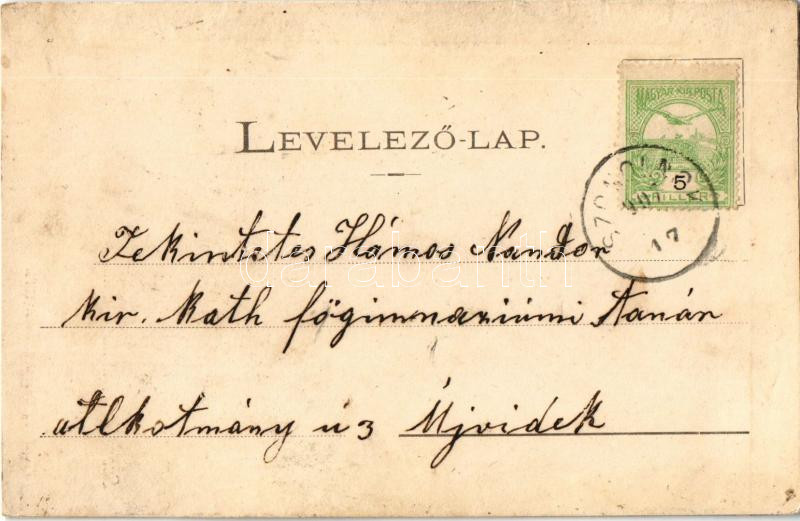 MAGYAR KIR. POSTA
LEVELEZŐ-LAP.
5
FILLÉR
SZOLNOK
17
Tekintetes Hámos Nándor
kir. kath főgimnaziúmi tanár
alkotmány u 3 Újvidek
darabanth